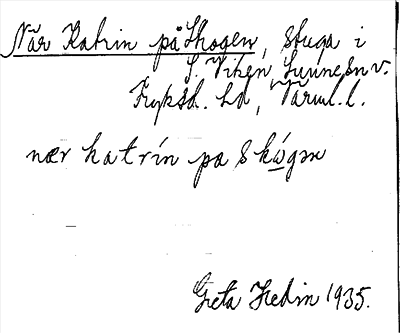 När Katrin på Skogen, stuga i
S. Viken, Sunne sn v.
Fryksd. hd, Värml. l.
nær katrín pa skógən
Greta Hedin 1935.